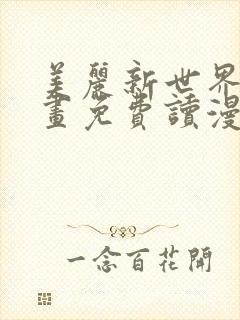 美麗新世界
畫免費讀漫
一念百花開